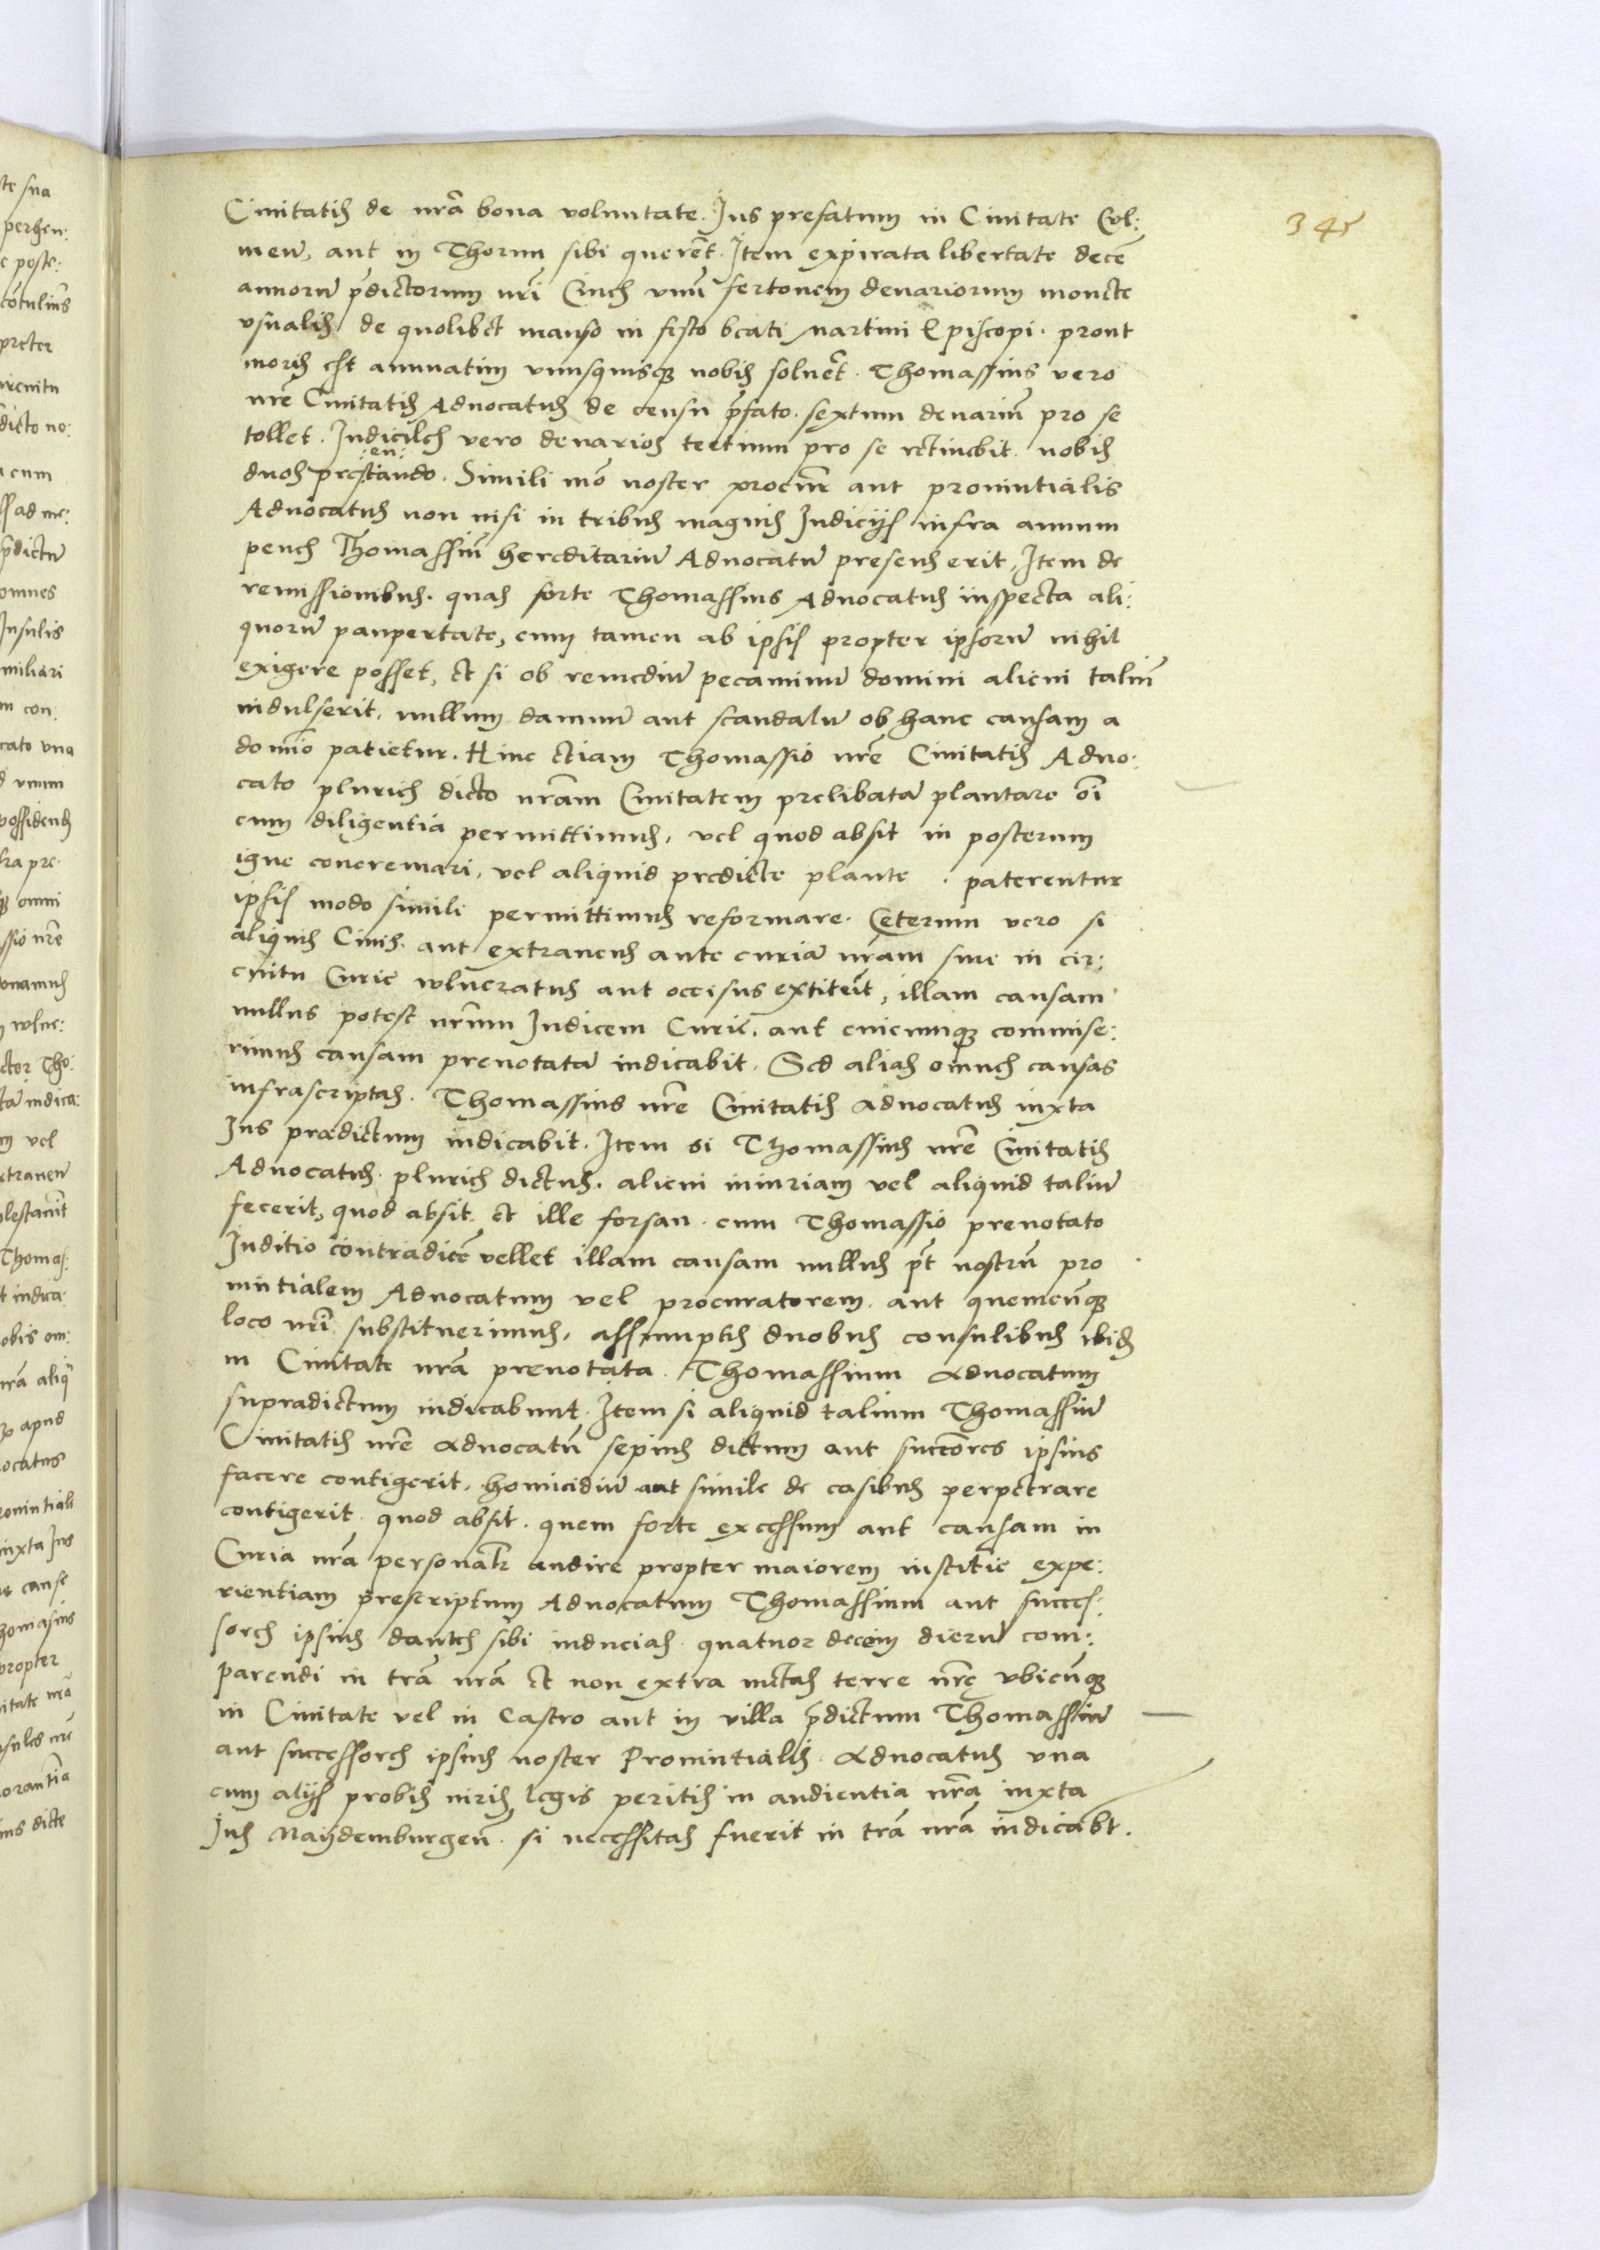 345
Ciuitatis de nrã bona voluntate. Jus prefatum in Ciuitate Col:
meñ, aut in Thorun sibi querẽt. Item expirata libertate decẽ
annorũ p̃dictorum nrĩ Ciues vnũ fertonem denariorum monete
vsualis, de quolibet manso in festo beati Martini Episcopi. prout
moris est annuatim vnusquisq; nobis soluẽt. Thomassius vero
nrẽ Ciuitatis Aduocatus de censu p̃fato. sextum denariũ pro se
tollet. Judiciles vero denarios tertium pro se retinebit. nobis
duos presen:tando. Simili mõ noster procur̃ aut prouintialis
Aduocatus non nisi in tribus magnis Judicijs infra annum
penes Thomassiũ hereditariũ Aduocatũ presens erit, Item de
remissionibus. quas forte Thomassius Aduocatus inspecta ali:
quorũ paupertate, cum tamen ab ipsis propter ipsorũ nihil
exigere posset, et si ob remediũ pecaminũ domini alicui taliũ
indulserit. nullum damnũ aut scandalũ ob hanc causam a
domĩo patietur. Hinc etiam Thomassio nrẽ Ciuitatis Aduo:
cato pluries dicto nrãm Ciuitatem prelibatã plantare oĩ
cum diligentia permittimus, vel quod absit in posterum
igne concremari, vel aliquid predicte plante . paterentur
ipsis modo simili permittimus reformare. Ceterum vero si
aliquis Ciuis. aut extraneus ante curiã nrãm siue in cir:
cuitu Curie wlneratus aut occisus extiterit, illam causam
nullus potest nrũm Judicem Curie. aut cuicumq; commise:
rimus causam prenotatã iudicabit. Sed alias omnes causas
infrascriptas. Thomassius nrẽ Ciuitatis aduocatus iuxta
Jus prædictum iudicabit. Item si Thomassius nrẽ Ciuitatis
Aduocatus. pluries dictus. alicui iniuriam vel aliquid taliũ
fecerit, quod absit. et ille forsan. cum Thomassio prenotato
Juditio contradicẽ vellet illam causam nullus põt nostrũ pro
uintialem Aduocatum vel procuratorem. aut quemcũq;
loco nrĩ substituerimus, assumptis duobus consulibus ibid
in Ciuitate nrã prenotata. Thomassium aduocatum
supradictum iudicabunt. Item si aliquid talium Thomassiũ
Ciuitatis nrẽ aduocatũ sepius dictum aut succõres ipsius
facere contigerit. homicidiũ aut simile de casibus perpetrare
contigerit. quod absit. quem forte excessum aut causam in
Curia nrã personalr̃ audire propter maiorem iustitie expe:
rientiam prescriptum Aduocatum Thomassium aut succes:
sores ipsius dantes sibi inducias. quatuor decem dierũ com:
parendi in trã nrã et non extra metas terre nrẽ vbicũq;
in Ciuitate vel in Castro aut in villa p̃dictum Thomassiũ
aut successores ipsius noster Prouintialis. aduocatus vna
cum alijs probis uiris legis peritis in audientia nrã iuxta
Jus Maydemburgeñ. si necessitas fuerit in trã nrã iudicabt.